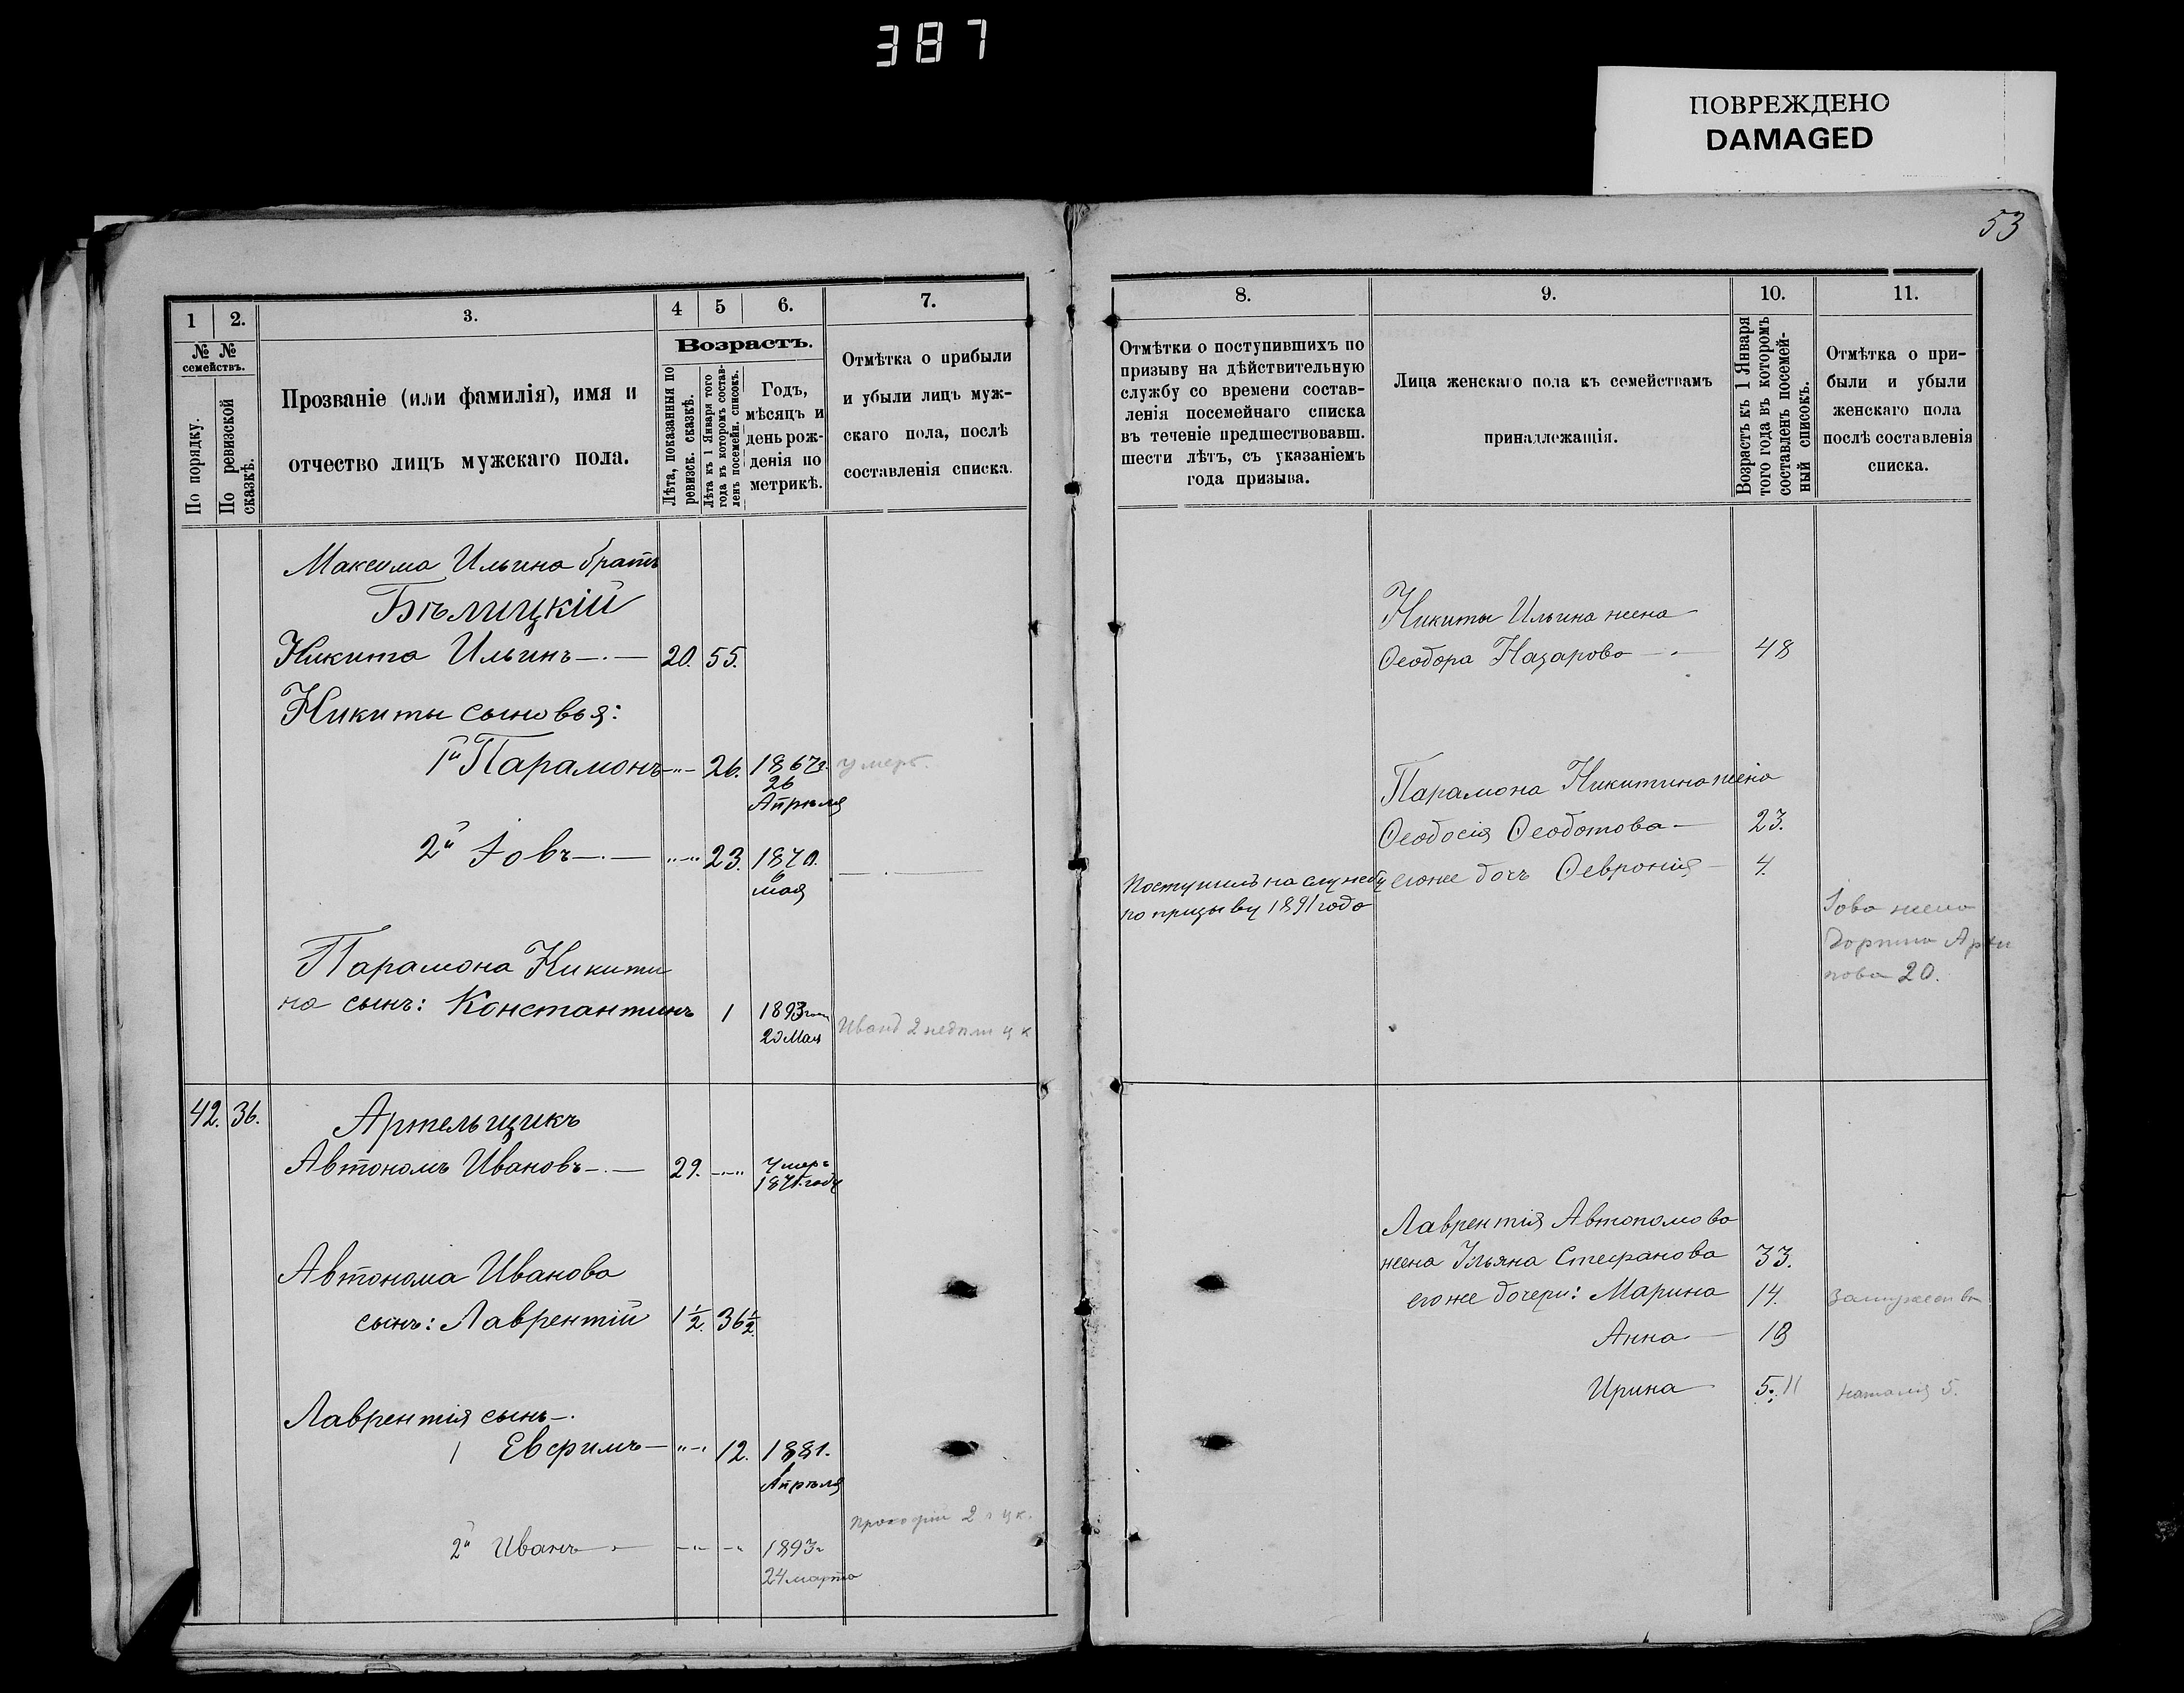 387
ПОВРЕЖДЕНО
DAMAGED
53
1
2.
3.
4
5
6.
7.
№ №
семействъ.
По порядку.
По ревизской
сказкѣ.
Прозваніе (или фамилія), имя и
отчество лицъ мужскаго пола.
Возрастъ.
Лѣта, показанныя по
ревизск. сказкѣ.
Лѣта къ 1 Января того
года въ которомъ состав-
ленъ посемейн. списокъ.
Годъ,
мѣсяцъ и
день рож-
денія по
метрикѣ.
Отмѣтка о прибыли
и убыли лицъ муж-
скаго пола, послѣ
составленія списка.
Максима Ильина братъ
Бѣлицкій
Никита Ильинъ —.— 20. 55.
Никиты сыновья:
1й Парамонъ —"— 26. 1867г. умеръ.
26
Апрѣля
2й Іовъ —.— "—" 23. 1870.
6
мая
Парамона Никити
на сынъ: Константинъ 1 1893
20 Мая
Иванъ 2 недѣли
42. 36. Артельщикъ
Автономъ Ивановъ —.— 29. —"— Умеръ
1871 году
Автонома Иванова
сынъ: Лаврентій 1 1/2. 36 1/2
Лаврентія сынъ —.
1 Евфимъ — "—" 12. 1881.
Апрѣля
Прокофій 2
2й Иванъ —.— —"— —" 1893г
24 марта
8.
9.
10.
11.
Отмѣтки о поступившихъ по
призыву на дѣйствительную
службу со времени состав-
ленія посемейнаго списка
въ теченіе предшествовавш.
шести лѣтъ, съ указаніемъ
года призыва.
Лица женскаго пола къ семействамъ
принадлежащія.
Возрастъ къ 1 Января
того года въ которомъ
составленъ посемей-
ный списокъ.
Отмѣтка о при-
были и убыли
женскаго пола
послѣ составленія
списка.
Никиты Ильина жена
Ѳеодора Назарова —.— 48
Парамона Никитина жена
Ѳеодосія Ѳеодотова — 23.
его же дочь Ѳевронія — 4.
Поступилъ на службу
по призыву 1891 года
Іова жена
Архи
пова 20.
Лаврентія Автономова
жена Ульяна Стефанова 33.
его же дочери: Марина 14. замужест въ
Анна — 18
Ирина 5. 11 Наталія 5.